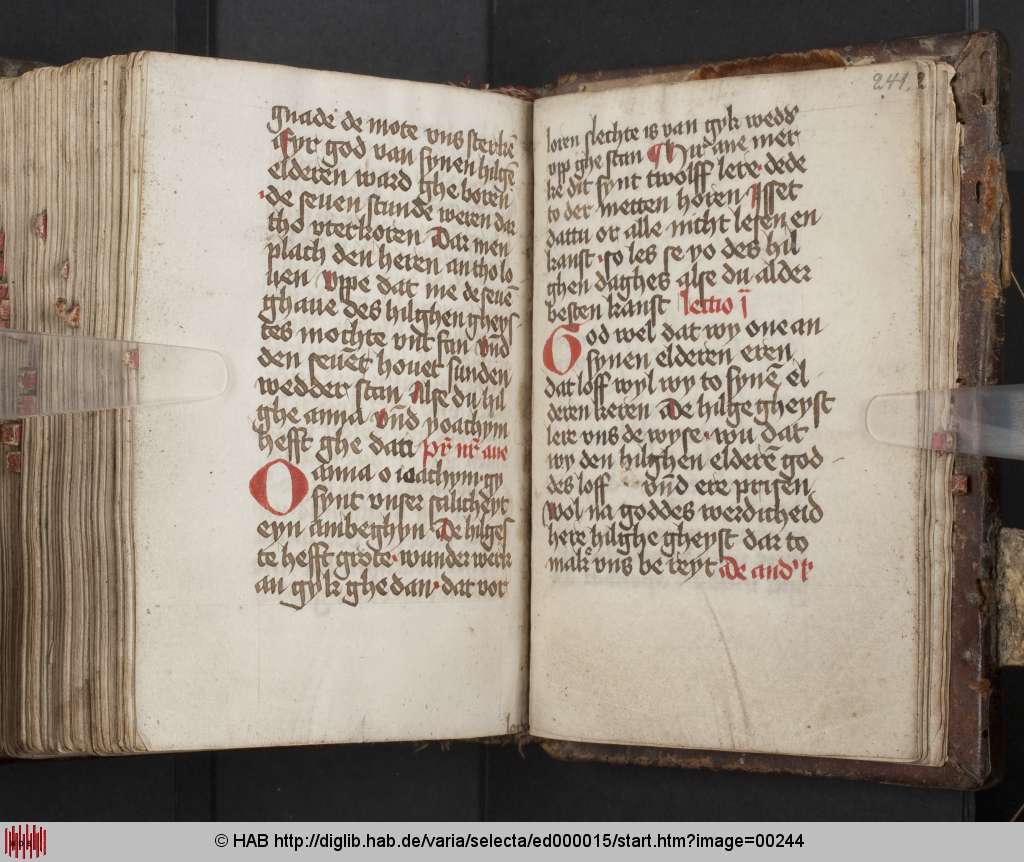 gnade de mote vns sterkē
Fyr god van synen hilgē
elderen ward ghe boren
de seuen stunde weren dar
tho vterkoren Dar men
plach den heren an tho lo
uen Vppe dat me de seuē
ghaue des hilghen gheys
tes mochte vnt fan vn̄d
den seuēt houet sunden
wedder stan Alse du hil
ghe anna vn̄d yoachym
hefft ghe dan pr̄ nr̄ aue
O anna o ioachym gy
synt vnser salicheyt
eyn ambeghyn De hilges
te hefft grote wunder werk
an gyk ghe dan dat vor
241,2
loren slechte is van gyk wedd'
vpp ghe stan ane mer
ke dit synt twolff lere dede
to der metten horen Isset
dattu or alle nicht lesen en
kanst so les se yo des hil
ghen daghes alse du alder
besten kanst lectio j
God wel dat wy one an
synen elderen eren
dat loff wyl wy to synē el
deren keren De hilge gheyst
lere vns de wyse wu dat
wy den hilghen elderē god
des loff vn̄d ere prisen
Wol na goddes werdicheid
here hilghe gheyst dar to
mak vns be reyt de and' l'
© HAB http://diglib.hab.de/varia/selecta/ed000015/start.htm?image=00244